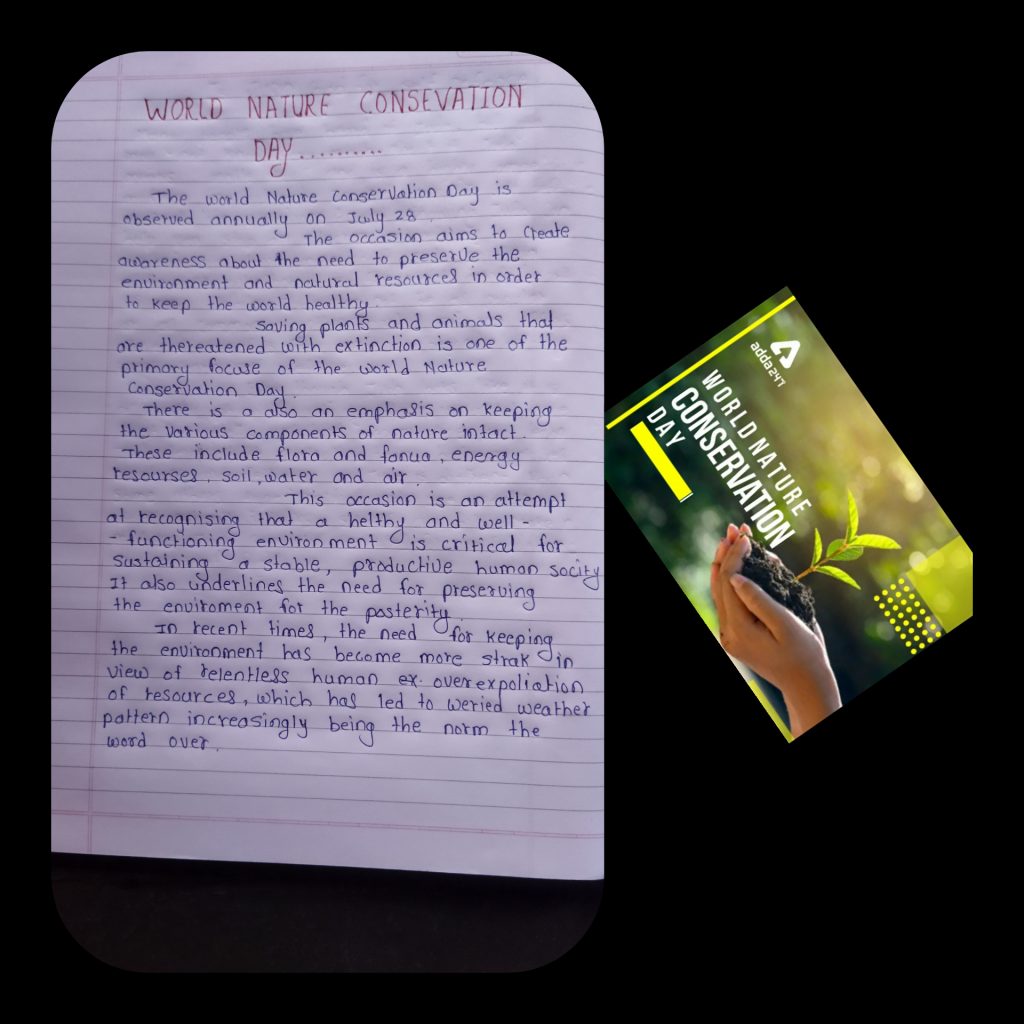 WORLD NATURE CONSEVATION
DAY..........
The world Nature Conservation Day is
observed annually on July 28.
The occasion aims to create
awareness about the need to preserve the
environment and natural resources in order
to keep the world healthy.
Saving plants and animals that
are thereatened with extinction is one of the
primary focuse of the world Nature
Conservation Day.
There is a also an emphasis on keeping
the various components of nature intact.
These include flora and fanua, energy
resourses, soil, water and air.
This occasion is an attempt
at recognising that a helthy and well-
-functioning environment is critical for
sustaining a stable, productive human socity
It also underlines the need for preserving
the enviroment for the posterity.
In recent times, the need for keeping
the environment has become more strak in
view of relentless human ex. overexpoliation
of resources, which has led to weried weather
pattern increasingly being the norm the
word over.
adda247
WORLD NATURE
CONSERVATION
DAY